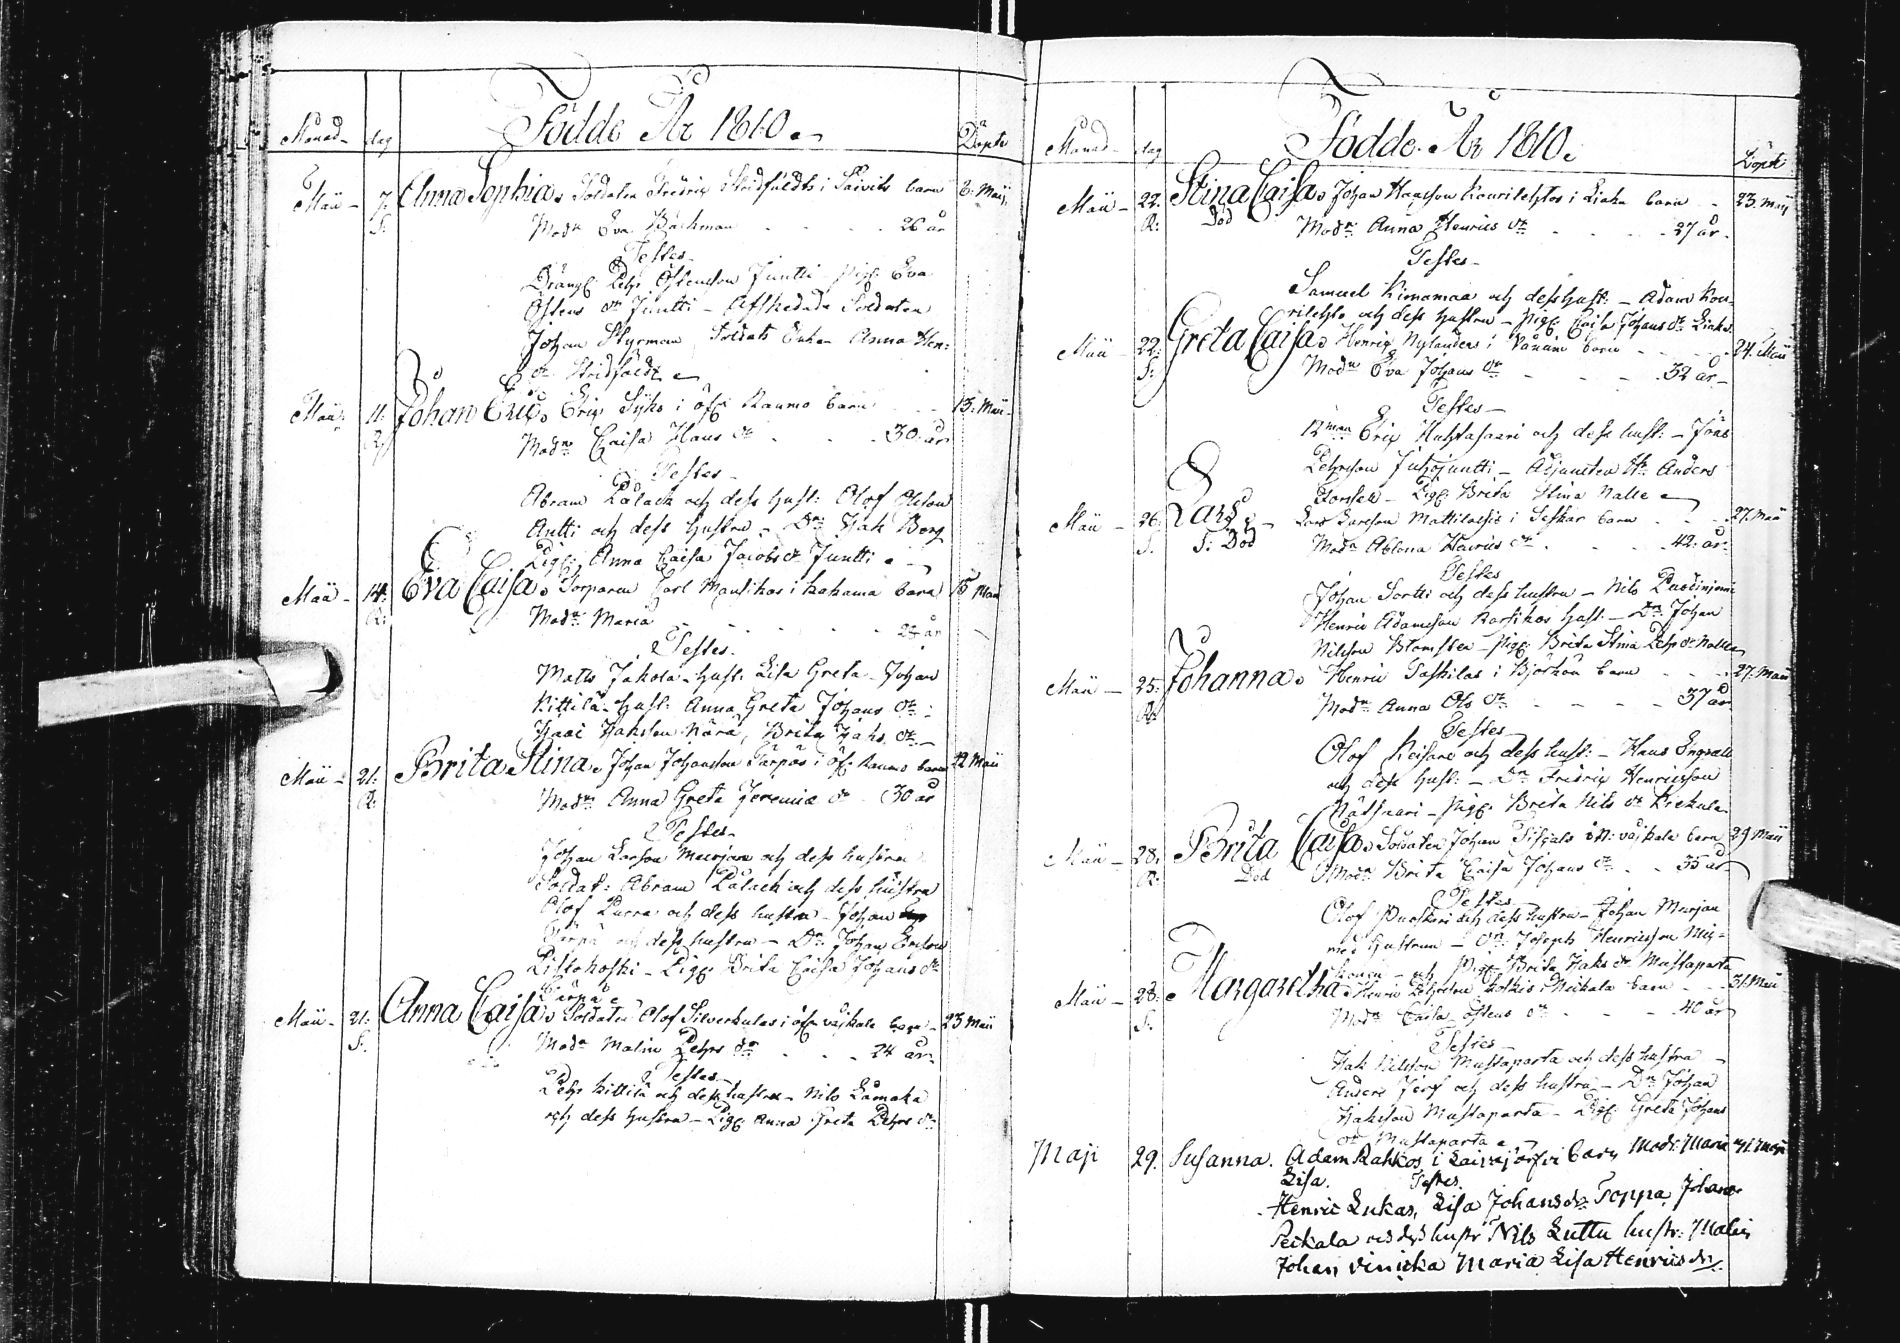 Månad dag Födde År 1810. Döpte
Maii 7. Anna Sophia. Soldaten Fredrix Stridfäldts i Säivits barn 8. Maii
S. Modr Eva Bäckman 26 år
Testes
Drängen Pehr Östensson Juntti Pig. Eva
Östens dr Juntti Afskedade Soldaten
Johan Styrman Soldats Enkan Anna Hen=
dr Stridfäldt
Maii 11. Johan Eric. Erix Sÿks i öfr Raumo barn 13. Maii
R. Modr Caisa Hans dr 30 år
Testes
Abram Pålack och dess hust: Olof Olsson
Antti och dess hustru Dr: Isak Berg
Pig: Anna Caisa Jacobs dr Juntti
Maii 14. Eva Caisa. Torparen Carl i Kakama barn 15 Maii
R. Modr Maria 24 år
Testes
Matts Jakola hust: Lisa Greta Johan
Kittilä hust: Anna Greta Johans dr
Isaksson Närä, Brita Isaks dr
Maii 21. Brita Stina. Johan Johansson Pärpäs i öfr Raumo barn 22 Maii
R. Modr Anna Greta Jeremiæ dr 30 år
Testes
Johan Larsson och dess hustru
Soldat: Abram Pålack och dess hustru
Olof Purra och dess hustru Johan
Pärpä och dess hustru Dr: Johan Ersson
Listokoski Pig: Brita Caisa Johans dr
Pärpä
Maii 21. Anna Caisa. Soldaten Olof Silverkulas i öfr Vojkala barn 23 Maii
S. Modr Malin Pehrs dr 24 år
Testes
Pehr Kittilä och dess hustru Nils Lämaka
och dess hustru Pig: Anna Greta Pehrs dr
Månad dag Födde År 1810. Döpte
Maii 22. Stina Caisa. Johan Hansson i Liaka barn 23. Maij
R. Död Modr Anna Henrics dr 27 år
Testes
Samuel Kimamaa och dess hust: Adam
och dess hustru Pig: Caisa Johans dr Liaka
Maii 22. Greta Caisa. Henrix Nylanders i barn 24. Maii
S. Modr Eva Johans dr 32 år
Testes
12 man Erix Huhtasaari och dess hust: Jöns
Pehrsson Juhojuntti Adjuncten Hr. Anders
Pig: Brita Stina Nalle
Maii 26. Lars. Lars Larsson Mattilas i Seskar barn 27. Maii
S. S. Död Modr Henrics dr 42 år
Testes
Johan Sortti och dess hustru Nils
Henric Adamsson Karsikos hust. Dr: Johan
Nilsson Blomster Pig: Brita Stina Pehrs dr Nalle
Maii 25. Johanna. Henric Taskilas i Björkön barn 27. Maii
R. Modr Anna Ols dr 37 år
Testes
Olof Keisare och dess hust: Hans Engvall
och dess hust: Dr: Fredrix Henricsson
Nätsaari Pig: Brita Nils dr Kiekula
Maii 28. Brita Caisa. Soldaten Johan i N: Vojkala barn 29 Maii
R. Död Modr Brita Caisa Johans dr 35 år
Testes
Olof Puoskari och dess hustru Johan Murjan
med hustrun Dr: Joseph Henricsson
och Pig: Brita Isaks dr Mustaparta
Maii 28. Margaretha. Henric Pehrsson i Neikala barn 31. Maii
S. Modr Caisa Östens dr 40 år
Testes
Isak Nilsson Mustaparta och dess hustru
Anders Jerf och dess hustru Dr: Johan
Isaksson Mustaparta Pig: Greta Johans
dr Mustaparta
Maji 29. Susanna. Adam Rahkos i Laivajärfvi barn Modr: Maria 31. Maji
Lisa. Testes.
Henric Lukas, Lisa Johansdr Toppa, Johan
Peikala och dess hustr Nils Luttu hustr: Malin
Johan Vinicka Maria Lisa Henricsdr.